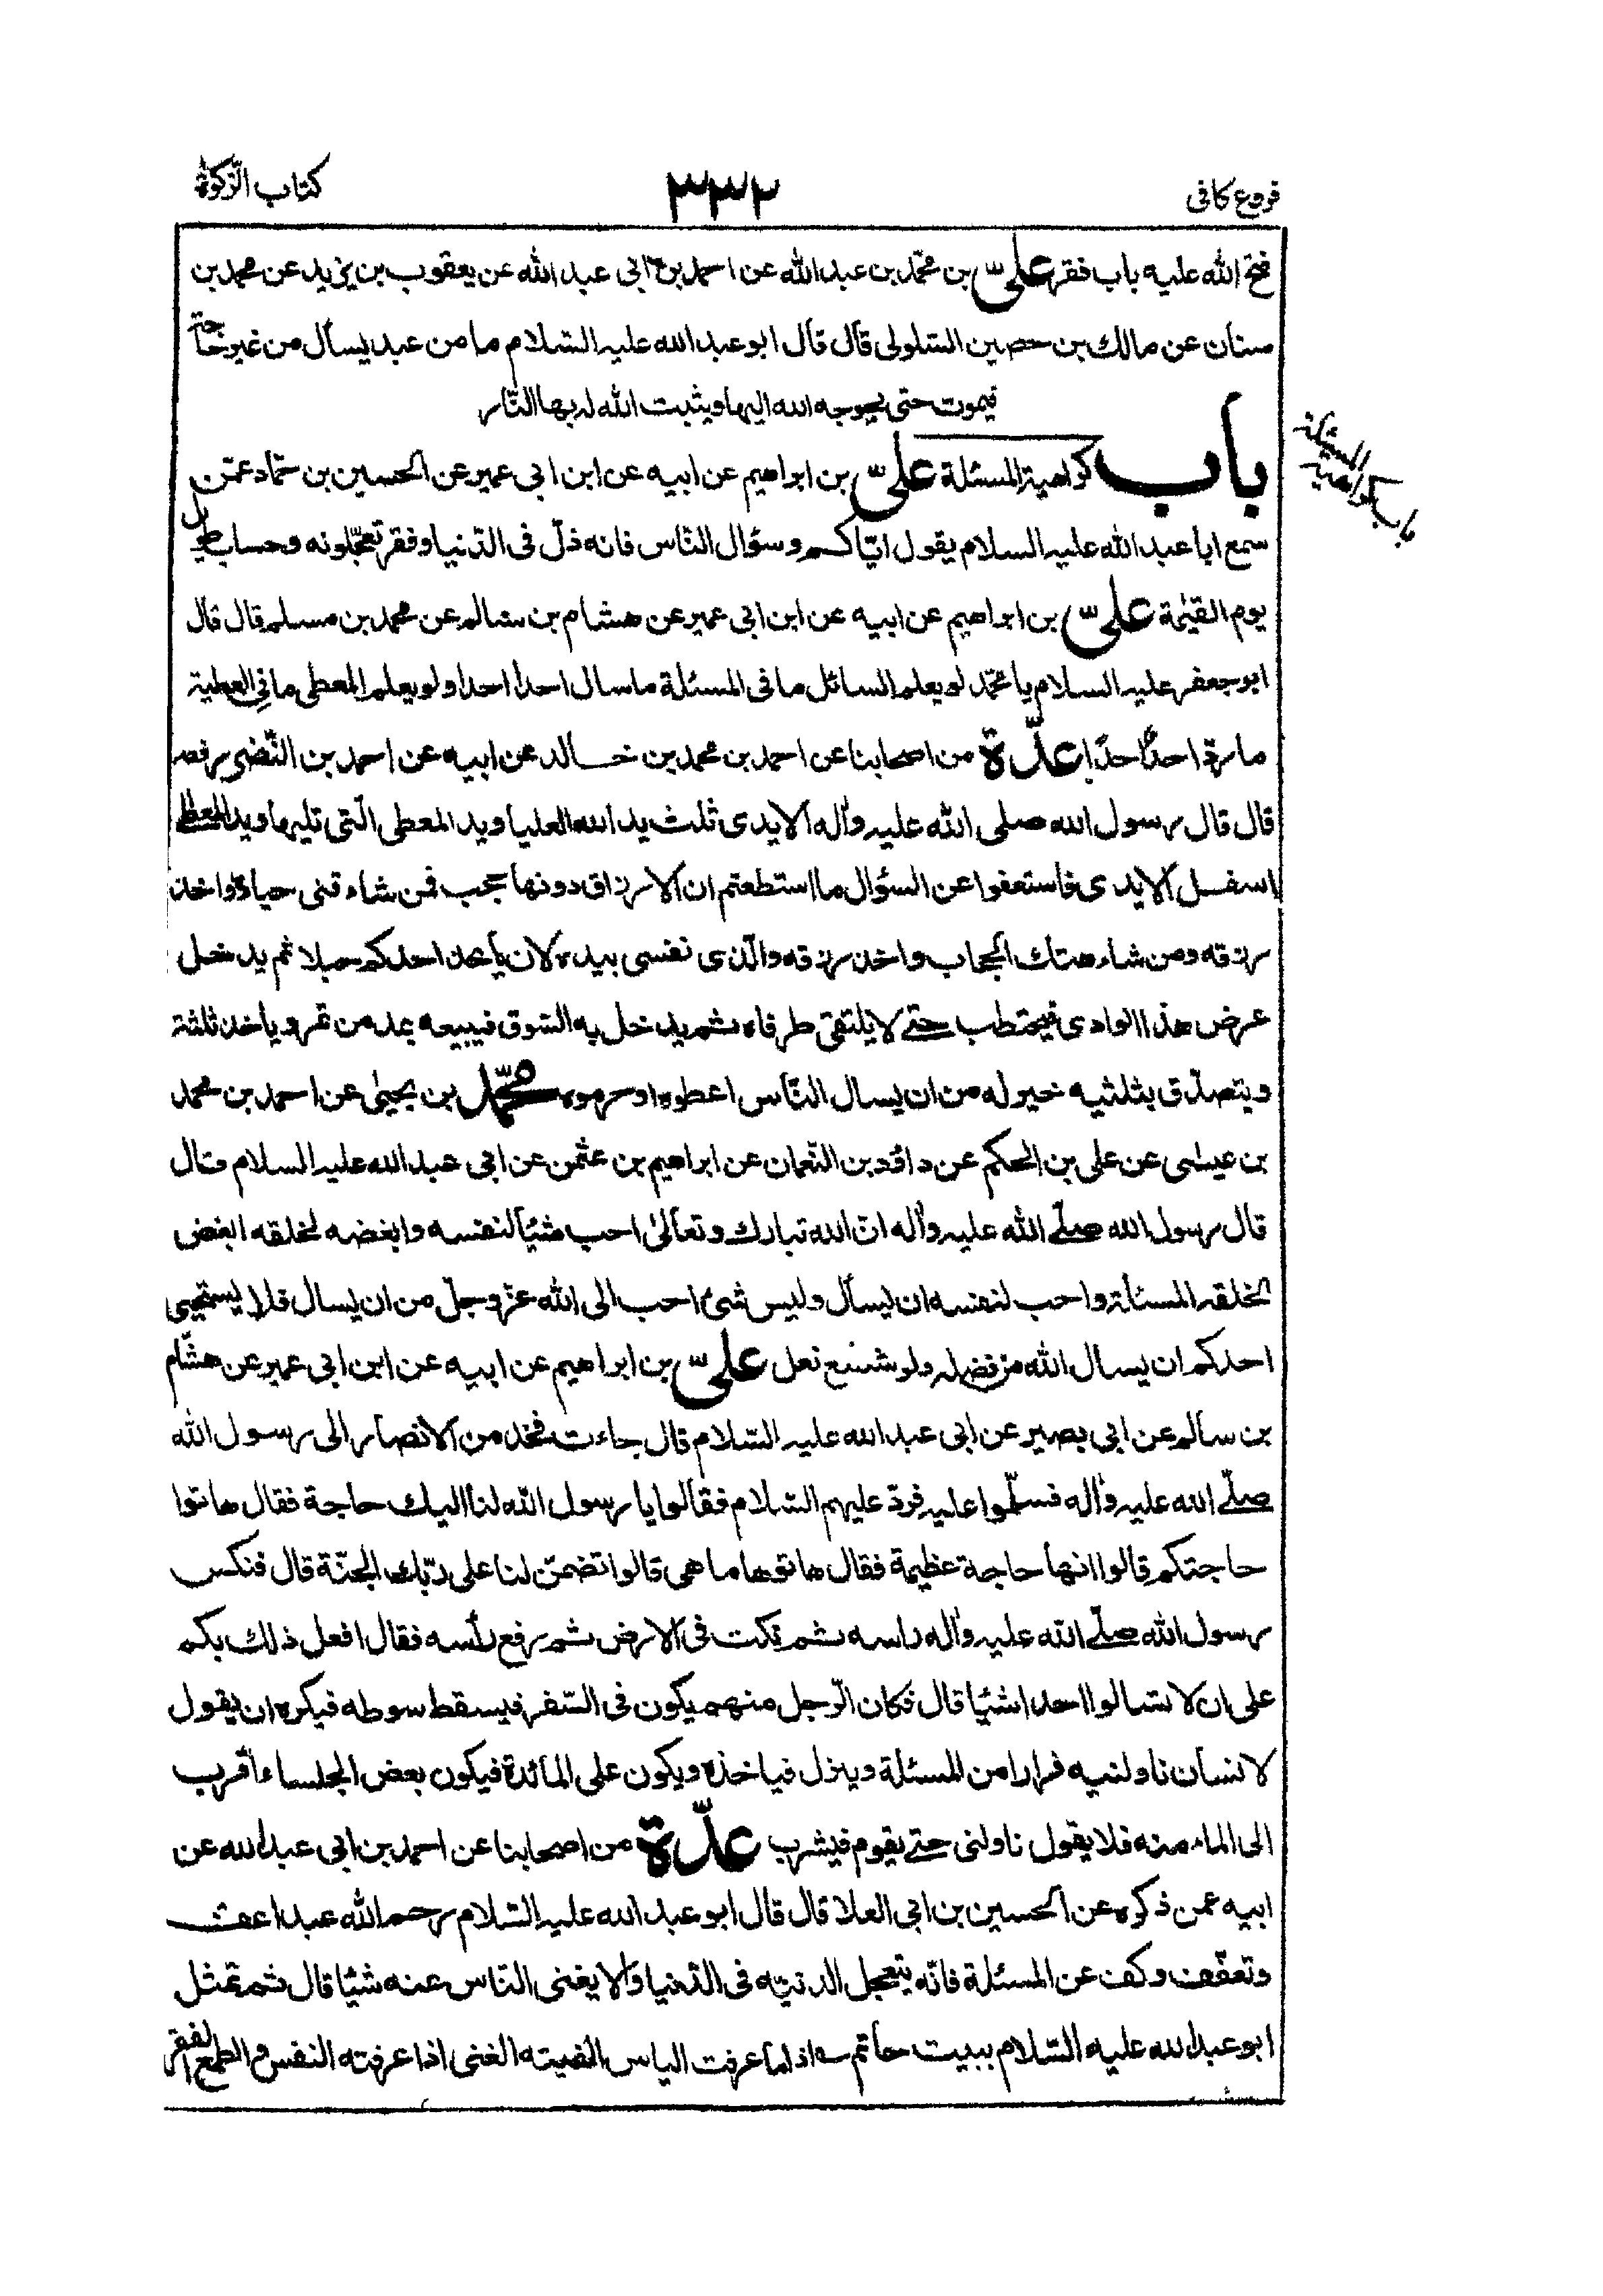 فروع كافى ٣٣٢ كتاب الزكوة
فتح الله عليه باب فقر علىّ بن محمّد بن عبدالله عن احمد بن ابى عبد الله عن يعقوب بن يزيد عن محمد بن
سنان عن مالك بن حصين السلولى قال قال ابو عبد الله عليه السّلام ما من عبد يسأل من غير حاجة
فيموت حتى يحوجه الله اليها ويثبت الله له بها النّار
باب كراهية المسئلة علىّ بن ابراهيم عن ابيه عن ابن ابى عمير عن الحسين بن حمّاد عمّن
باب كراهية المسئلة
سمع ابا عبد الله عليه السلام يقول ايّاكم وسؤال النّاس فانه ذلّ فى الدّنيا وفقر تعجّلونه وحساب طويل
يوم القيٰمة علىّ بن ابراهيم عن ابيه عن ابن ابى عمير عن هشام بن سالم عن محمد بن مسلم قال قال
ابو جعفر عليه السلام يا محمّد لو يعلم السائل ما فى المسئلة ما سال احدا احدا ولو يعلم المعطى ما فى العطية
ما ردّ احدٌ احدًا عدّة من اصحابنا عن احمد بن محمد بن خالد عن ابيه عن احمد بن النّضر رفعه
قال قال رسول الله صلى الله عليه واٰله الايدى ثلث يد الله العليا ويد المعطى الّتى تليها ويد المعطى
اسفل الايدى فاستعفوا عن السؤال ما استطعتم ان الارزاق دونها حجب فمن شاء قنى حياءه واخذ
رزقه ومن شاء هتك الحجاب واخذ رزقه والّذى نفسى بيده لان ياخذ احدكم حبلا ثم يدخل
عرض هذا الوادى فيحتطب حتى لا يلتقى طرفاه ثم يدخل به السّوق فيبيعه بمد من تمر و ياخذ ثلثة
ويتصدّق بثلثيه خير له من ان يسال النّاس اعطوه او حرموه محمّد بن يحيىٰ عن احمد بن محمد
بن عيسٰى عن على بن الحكم عن داؤد بن النّعمان عن ابراهيم بن عثمن عن ابى عبد الله عليه السلام قال
قال رسول الله صلّى الله عليه واٰله ان الله تبارك وتعالىٰ احب شيئا لنفسه وابغضه لخلقه ابغض
لخلقه المسئلة واحب لنفسه ان يسأل وليس شئ احب الى الله عزّوجلّ من ان يسال فلا يستحيى
احدكم ان يسال الله من فضله ولو شسع نعل علىّ بن ابراهيم عن ابيه عن ابن ابى عمير عن هشّام
بن سالم عن ابى بصير عن ابى عبد الله عليه السّلام قال جاءت فخذ من الانصار الى رسول الله
صلّى الله عليه واٰله فسلّموا عليه فردّ عليهم السّلام فقالوا يا رسول الله لنا اليك حاجة فقال هاتوا
حاجتكم قالوا انها حاجة عظيمة فقال هاتوها ما هى قالوا تضمن لنا على ربّك الجنّة قال فنكس
رسول الله صلّى الله عليه واٰله راسه ثم نكت فى الارض ثم رفع رأسه فقال افعل ذلك بكم
على ان لا تسالوا احدا شيئا قال فكان الرّجل منهم يكون فى السّفر فيسقط سوطه فيكره ان يقول
لانسان ناولنيه فرارا من المسئلة وينزل فياخذه ويكون على المائدة فيكون بعض الجلساء اقرب
الى الماء منه فلا يقول ناولنى حتى يقوم فيشرب عدّة من اصحابنا عن احمد بن ابى عبدالله عن
ابيه عمن ذكره عن الحسين بن ابى العلا قال قال ابو عبد الله عليه السّلام رحم الله عبدا عف
وتعفّف وكف عن المسئلة فانّه يتعجل الدنيّه فى الدّنيا ولا يغنى النّاس عنه شيئا قال ثم تمثل
ابو عبدالله عليه السّلام ببيت حاتم اذا ما عرفت الياس الفيته الغنى اذا عرفته النفس والطمع الفقر